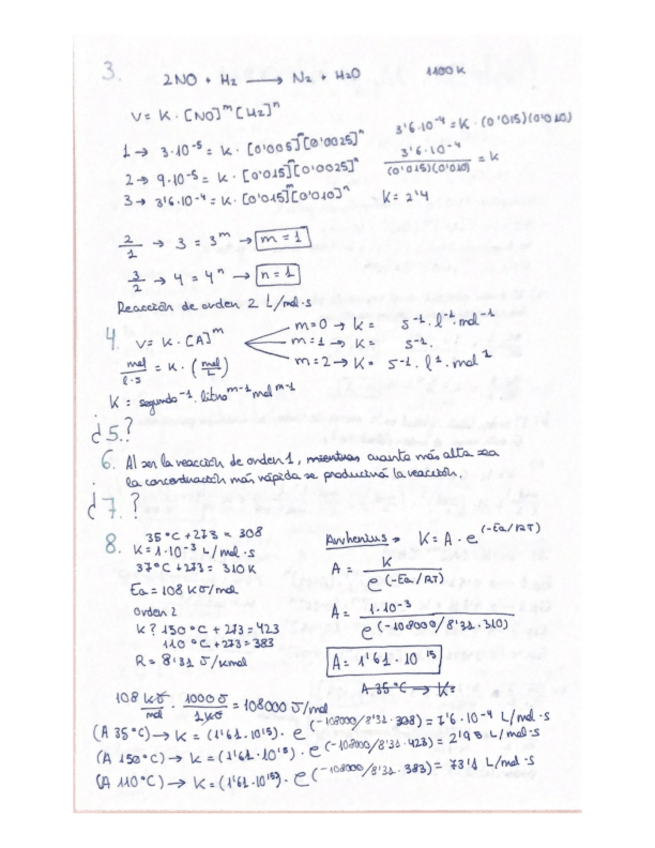 3.
2NO + H2 → N2 + H2O 1100K
V = K · [NO]^m [H2]^n
3'6·10^-4 = K · (0'015)(0'010)
1 → 3·10^-5 = K · [0'005]^m [0'0025]^n
3'6·10^-4 / (0'015)(0'010) = K
2 → 9·10^-5 = K · [0'015]^m [0'0025]^n
3 → 3'6·10^-4 = K · [0'015]^m [0'010]^n K = 2'4
2/1 → 3 = 3^m → m = 1
3/2 → 4 = 4^n → n = 1
Reacción de orden 2 L/mol·s
4. V = K · [A]^m
m=0 → K = s^-1 · l^-1 · mol^-1
m=1 → K = s^-1.
m=2 → K = s^-1 · l^1 · mol^1
mol/l·s = K · (mol/L)
K = segundo^-1 · litro^m-1 mol^m-1
¿5.?
6. Al ser la reacción de orden 1, mientras cuanto más alta sea
la concentración más rápida se producirá la reacción.
¿7.?
8. 35°C + 273 = 308
K = 1·10^-3 L/mol·s
37°C + 273 = 310K
Ea = 108 KJ/mol
Orden 2
K? 150°C + 273 = 423
110°C + 273 = 383
R = 8'31 J/Kmol
Arrhenius → K = A · e^(-Ea/RT)
A = K / e^(-Ea/RT)
A = 1·10^-3 / e^(-108000/8'31·310)
A = 1'61·10^15
A 35°C → K=
108 KJ/mol · 1000J/1KJ = 108000 J/mol
(A 35°C) → K = (1'61·10^15) · e^(-108000/8'31·308) = 7'6·10^-4 L/mol·s
(A 150°C) → K = (1'61·10^15) · e^(-108000/8'31·423) = L/mol·s
(A 110°C) → K = (1'61·10^15) · e^(-108000/8'31·383) = L/mol·s